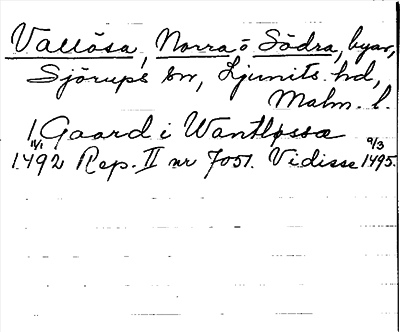 Vallösa, Norra o Södra, byar,
Sjörups sn, Ljunits hd,
Malm. l.
1 Gaard i Wantløssa
11/1 1492 Rep. II nr 7051. Vidisse 9/3 1495.